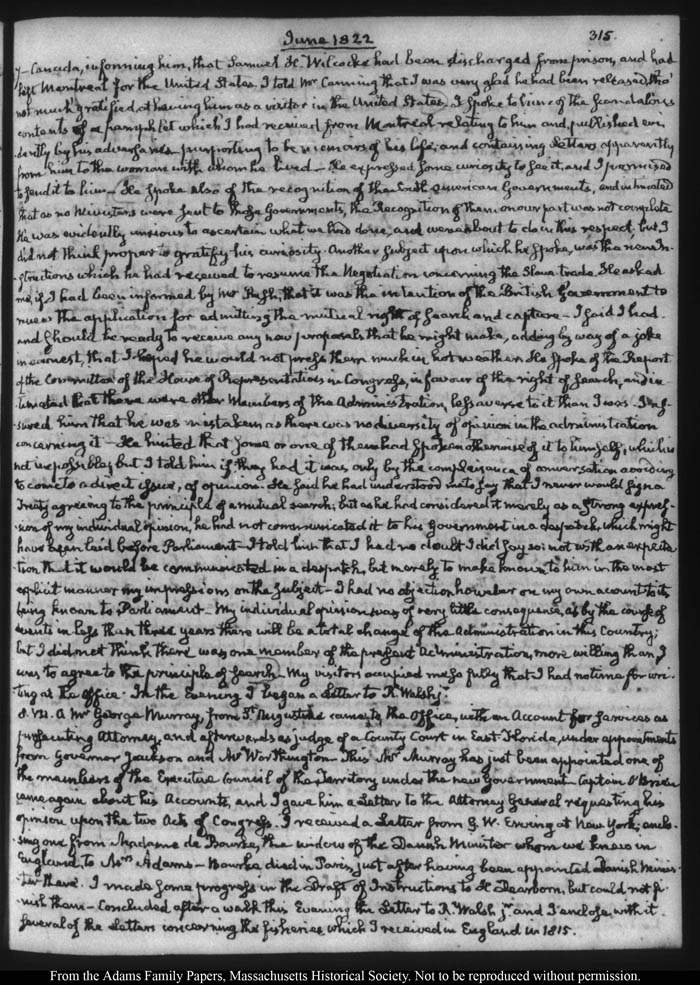 June 1822
315.
Canada, informing him, that Samuel H. Wilcocke had been discharged from prison, and had
left Montreal for the United States. I told Mr Canning that I was very glad he had been released, tho'
not much gratified at having him as a visitor in the United States. I spoke to him of the scandalous
contents of a pamphlet which I had received from Montreal relating to him and, published evi-
dently by his adversaries purporting to be memoirs of his life, and containing Letters apparently
from him to the woman with whom he lived — He expressed some curiosity to see it, and I promised
to send it to him — He spoke also of the recognition of the South American Governments, and intimated
that as no Ministers were sent to those Governments, the Recognition of them on our part was not complete
He was evidently anxious to ascertain what we had done, and were about to do in this respect, but I
did not think proper to gratify his curiosity. Another subject upon which he spoke, was the new In-
structions which he had received to resume the Negotiation concerning the Slave-trade. He asked
me, if I had been informed by Mr Rush, that it was the intention of the British Government to
renew the application for admitting the mutual right of search and capture — I said I had —
and should be ready to receive any new proposals that he might make, adding by way of a joke
in earnest, that I hoped he would not press them much in hot weather. He spoke of the Report
of the Committee of the House of Representatives in Congress, in favour of the right of search, and in-
timated that there were other Members of the Administration, less averse to it than I was. I as-
sured him that he was mistaken as there was no diversity of opinion in the administration
concerning it — He hinted that some or one of them had spoken otherwise of it to himself, which is
not impossible; but I told him if they had it was only by the complaisance of conversation avoiding
to come to a direct issue, of opinion. He said he had understood me to say that I never would sign a
Treaty agreeing to the principle of a mutual search; but as he had considered it merely as a strong expres-
sion of my individual opinion, he had not communicated it to his Government in a despatch, which might
have been laid before Parliament — I told him that I had no doubt I did say so: not with an expecta-
tion that it would be communicated in a despatch, but merely to make known to him in the most
explicit manner my impressions on the subject — I had no objection however on my own account to its
being known to Parliament — My individual opinion was of very little consequence, as by the course of
events in less than three years there will be a total change of the Administration in this Country;
but I did not think there was one member of the present Administration, more willing than I
was to agree to the principle of search — My visitors occupied me so fully that I had no time for wri-
ting at the Office. In the Evening I began a Letter to R. Walsh jr.
8. VII. A Mr George Murray, from St Augustine came to the Office, with an Account for services as
prosecuting Attorney, and afterwards as judge of a County Court in East-Florida, under appointments
from Governor Jackson and Mr Worthington. This Mr Murray has just been appointed one of
the members of the Executive Council of the Territory under the new Government — Captain O'Brien
came again about his Accounts, and I gave him a Letter to the Attorney General requesting his
opinion upon the two Acts of Congress. I received a Letter from G. W. Erving at New York; enclo-
sing one from Madame de Bourke, the widow of the Danish Minister whom we knew in
England to Mrs Adams — Bourke died in Paris, just after having been appointed Danish Minis-
ter there. I made some progress in the Draft of Instructions to H. Dearborn, but could not fi-
nish them — Concluded after a walk this Evening the Letter to R. Walsh jr. and I enclose with it
several of the Letters concerning the fisheries which I received in England in 1815.
From the Adams Family Papers, Massachusetts Historical Society. Not to be reproduced without permission.